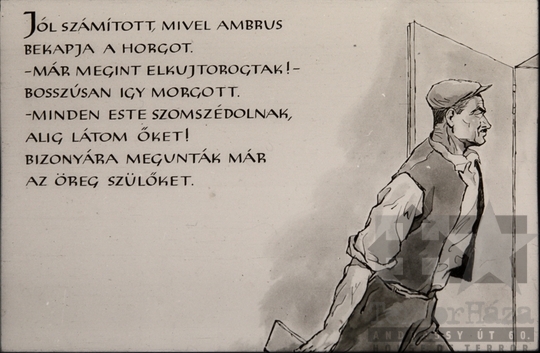 JÓL SZÁMÍTOTT, MIVEL AMBRUS
BEKAPJA A HORGOT.
-MÁR MEGINT ELKUJTOROGTAK!-
BOSSZÚSAN IGY MORGOTT.
-MINDEN ESTE SZOMSZÉDOLNAK,
ALIG LÁTOM ŐKET!
BIZONYÁRA MEGUNTÁK MÁR
AZ ÖREG SZÜLŐKET.
Terror Háza
ANDRÁSSY ÚT 60.
HOUSE OF TERROR